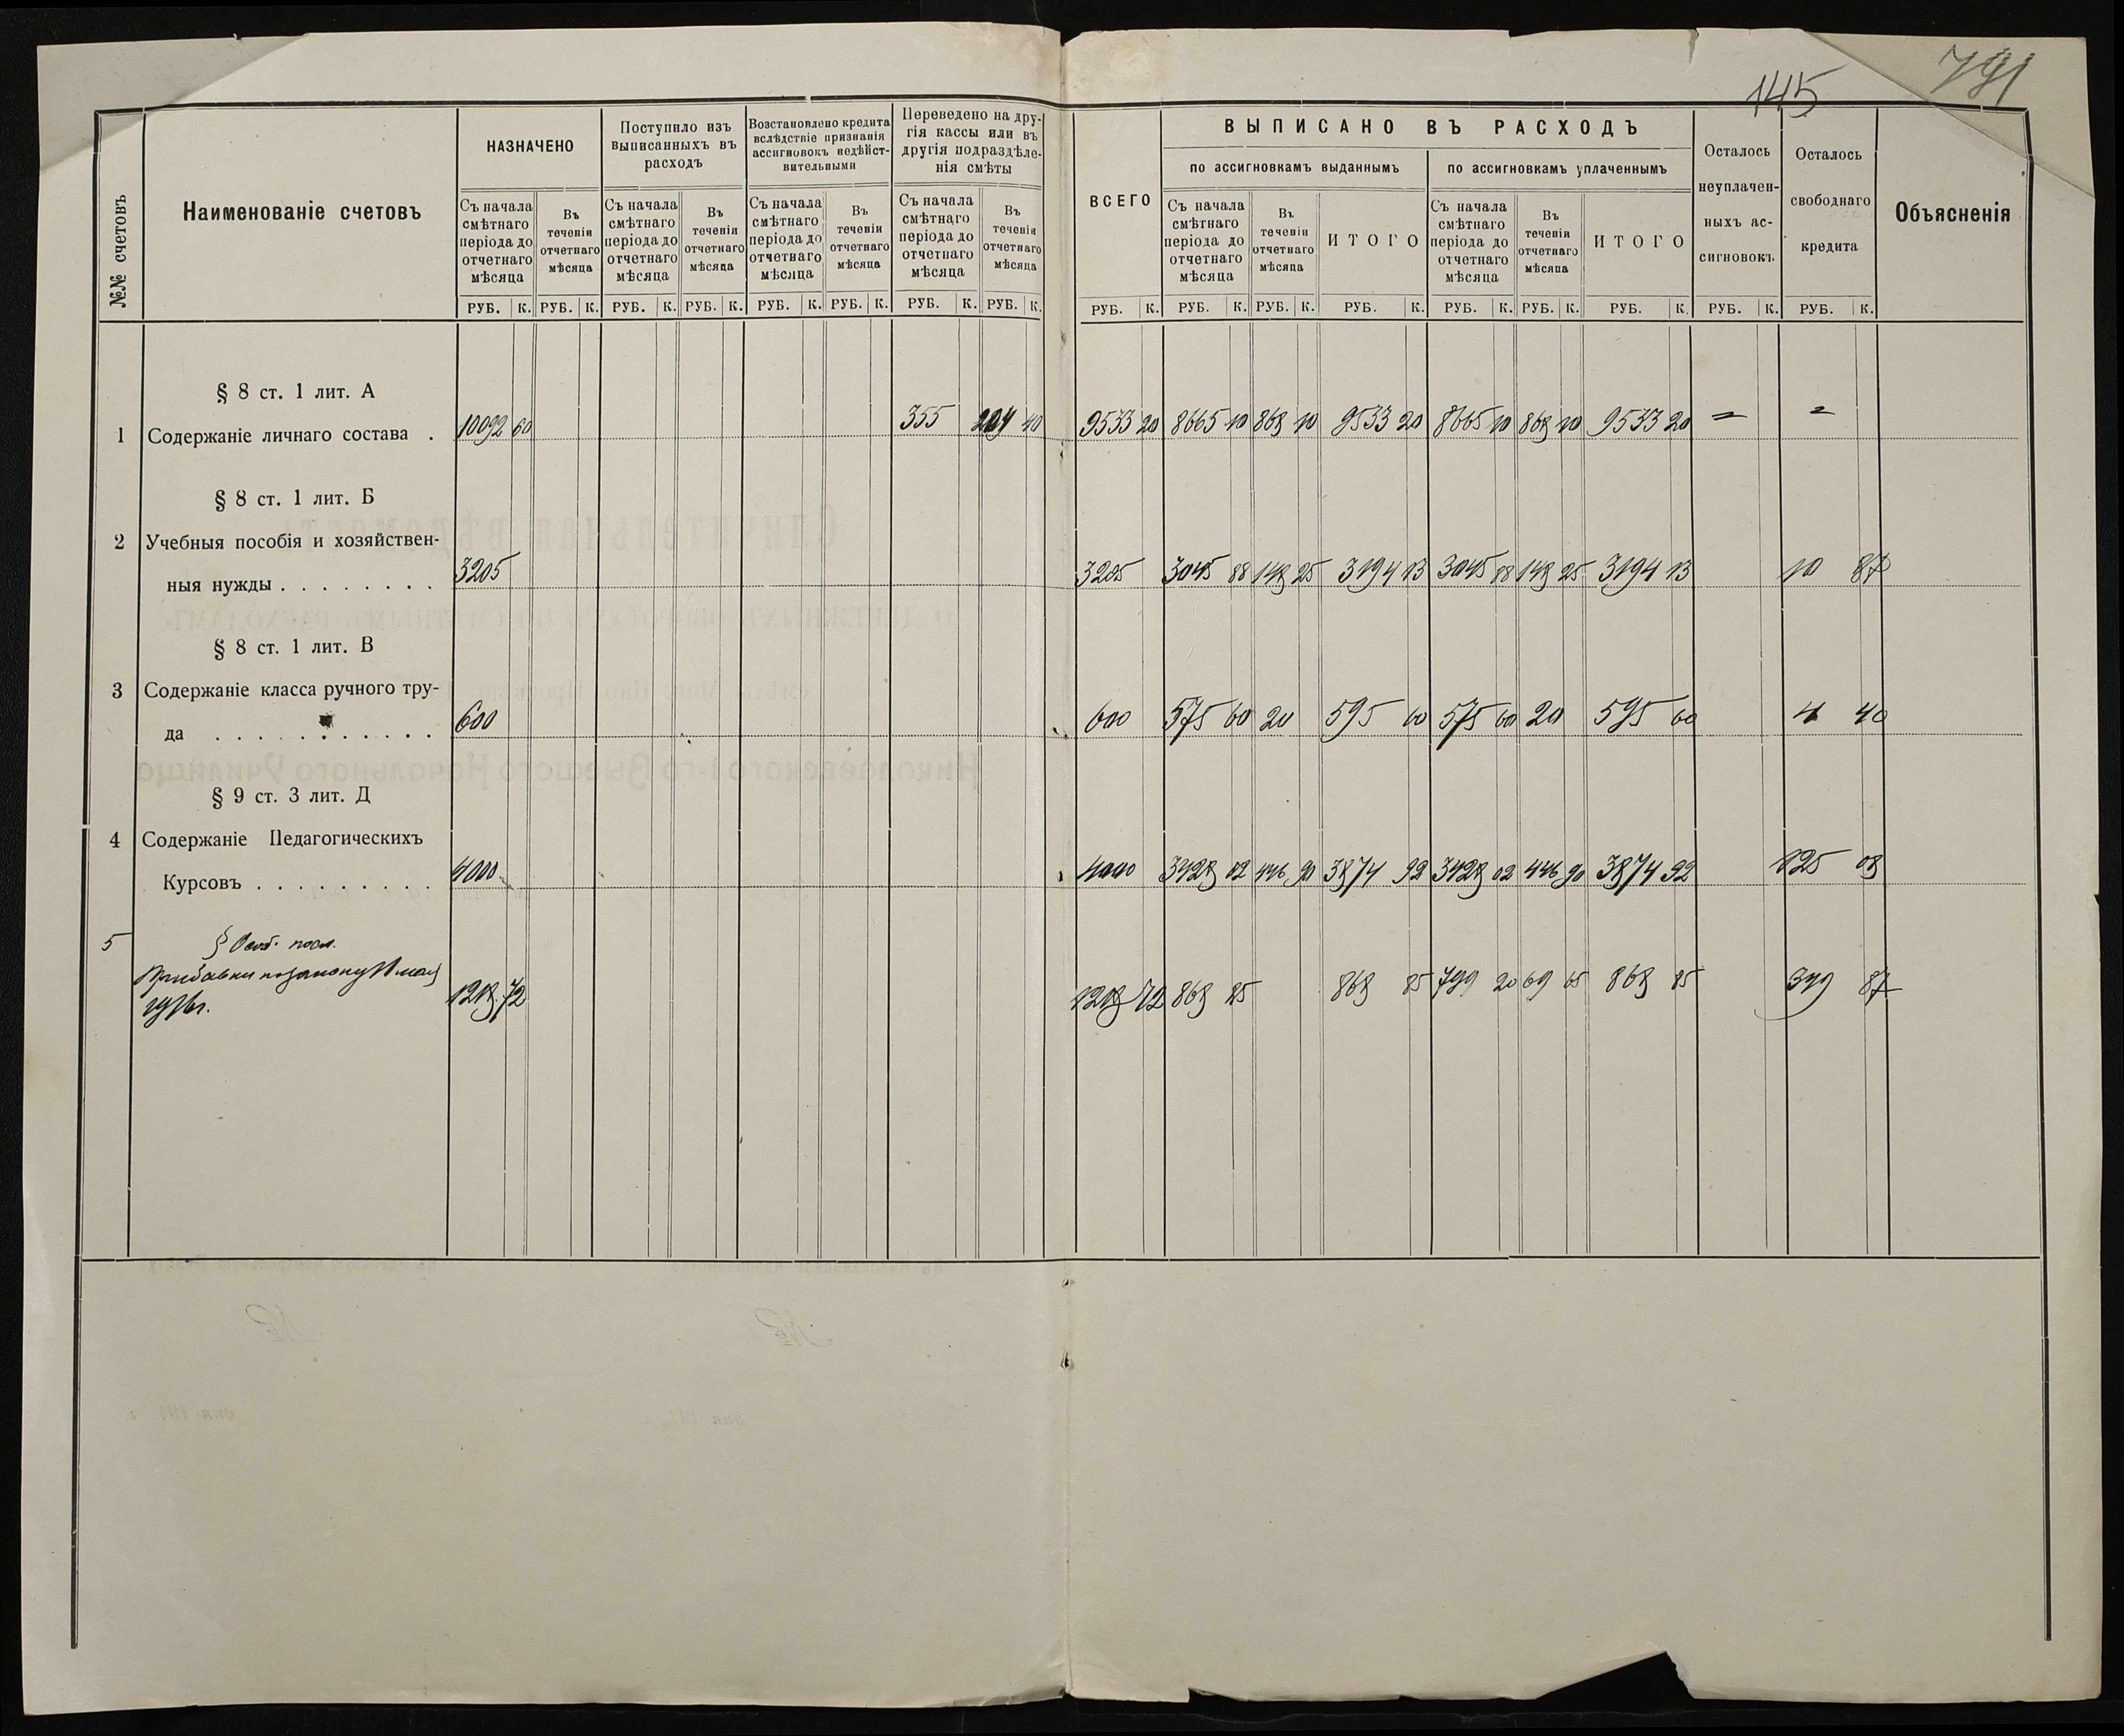 791
145
№№ счетовъ
Наименованіе счетовъ
НАЗНАЧЕНО
Поступило изъ
выписанныхъ въ
расходъ
Возстановлено кредита
вслѣдствіе признанія
ассигновокъ недѣйст-
вительными
Переведено на дру-
гія кассы или въ
другія подраздѣле-
нія смѣты
ВСЕГО
ВЫПИСАНО ВЪ РАСХОДЪ
по ассигновкамъ выданнымъ
по ассигновкамъ уплаченнымъ
Осталось
неуплачен-
ныхъ ас-
сигновокъ
Осталось
свободнаго
кредита
Объясненія
Съ начала
смѣтнаго
періода до
отчетнаго
мѣсяца
Въ
теченіи
отчетнаго
мѣсяца
Съ начала
смѣтнаго
періода до
отчетнаго
мѣсяца
Въ
теченіи
отчетнаго
мѣсяца
Съ начала
смѣтнаго
періода до
отчетнаго
мѣсяца
Въ
теченіи
отчетнаго
мѣсяца
Съ начала
смѣтнаго
періода до
отчетнаго
мѣсяца
Въ
теченіи
отчетнаго
мѣсяца
Съ начала
смѣтнаго
періода до
отчетнаго
мѣсяца
Въ
теченіи
отчетнаго
мѣсяца
ИТОГО
Съ начала
смѣтнаго
періода до
отчетнаго
мѣсяца
Въ
теченіи
отчетнаго
мѣсяца
ИТОГО
РУБ. К. РУБ. К. РУБ. К. РУБ. К. РУБ. К. РУБ. К. РУБ. К. РУБ. К. РУБ. К. РУБ. К. РУБ. К. РУБ. К. РУБ. К. РУБ. К. РУБ. К. РУБ. К. РУБ. К.
§ 8 ст. 1 лит. А
1 Содержаніе личнаго состава . 10092 60 355 204 40 9533 20 8665 10 868 10 9533 20 8665 10 868 10 9533 20 = =
§ 8 ст. 1 лит. Б
2 Учебныя пособія и хозяйствен-
ныя нужды . . . . . . . . 3205 3205 3045 88 148 25 3194 13 3045 88 148 25 3194 13 10 87
§ 8 ст. 1 лит. В
3 Содержаніе класса ручного тру-
да . . . . . . . . . . . 600 600 575 60 20 595 60 575 60 20 595 60 4 40
§ 9 ст. 3 лит. Д
4 Содержаніе Педагогическихъ
Курсовъ . . . . . . . . . 4000 4000 3428 02 446 90 3874 92 3428 02 446 90 3874 92 125 08
5 §
Прибавки по закону мая
1218 72 1218 72 868 85 868 85 799 20 69 65 868 85 349 87